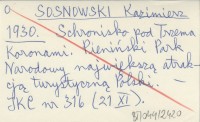 SOSNOWSKI Kazimierz
1930. Schronisko pod Trzema
Koronami. Pieniński Park
Narodowy największą atrak-
cją turystyczną Polski. -
IKC nr 316 (21 XI).
04912420